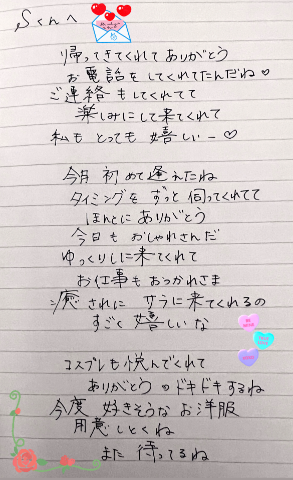 Sくんへ
帰ってきてくれてありがとう
お電話をしてくれてたんだね♡
ご連絡もしてくれてて
楽しみにして来てくれて
私もとっても嬉しぃー♡
今月初めて逢えたね
タイミングをずっと伺ってくれてて
ほんとにありがとう
今日もおしゃれさんだ
ゆっくりしに来てくれて
お仕事もおつかれさま
癒されに サラに来てくれるの
すごく嬉しいな
コスプレも悦んでくれて
ありがとう ドキドキするね
今度 好きそうな お洋服
用意しとくね
また 待ってるね